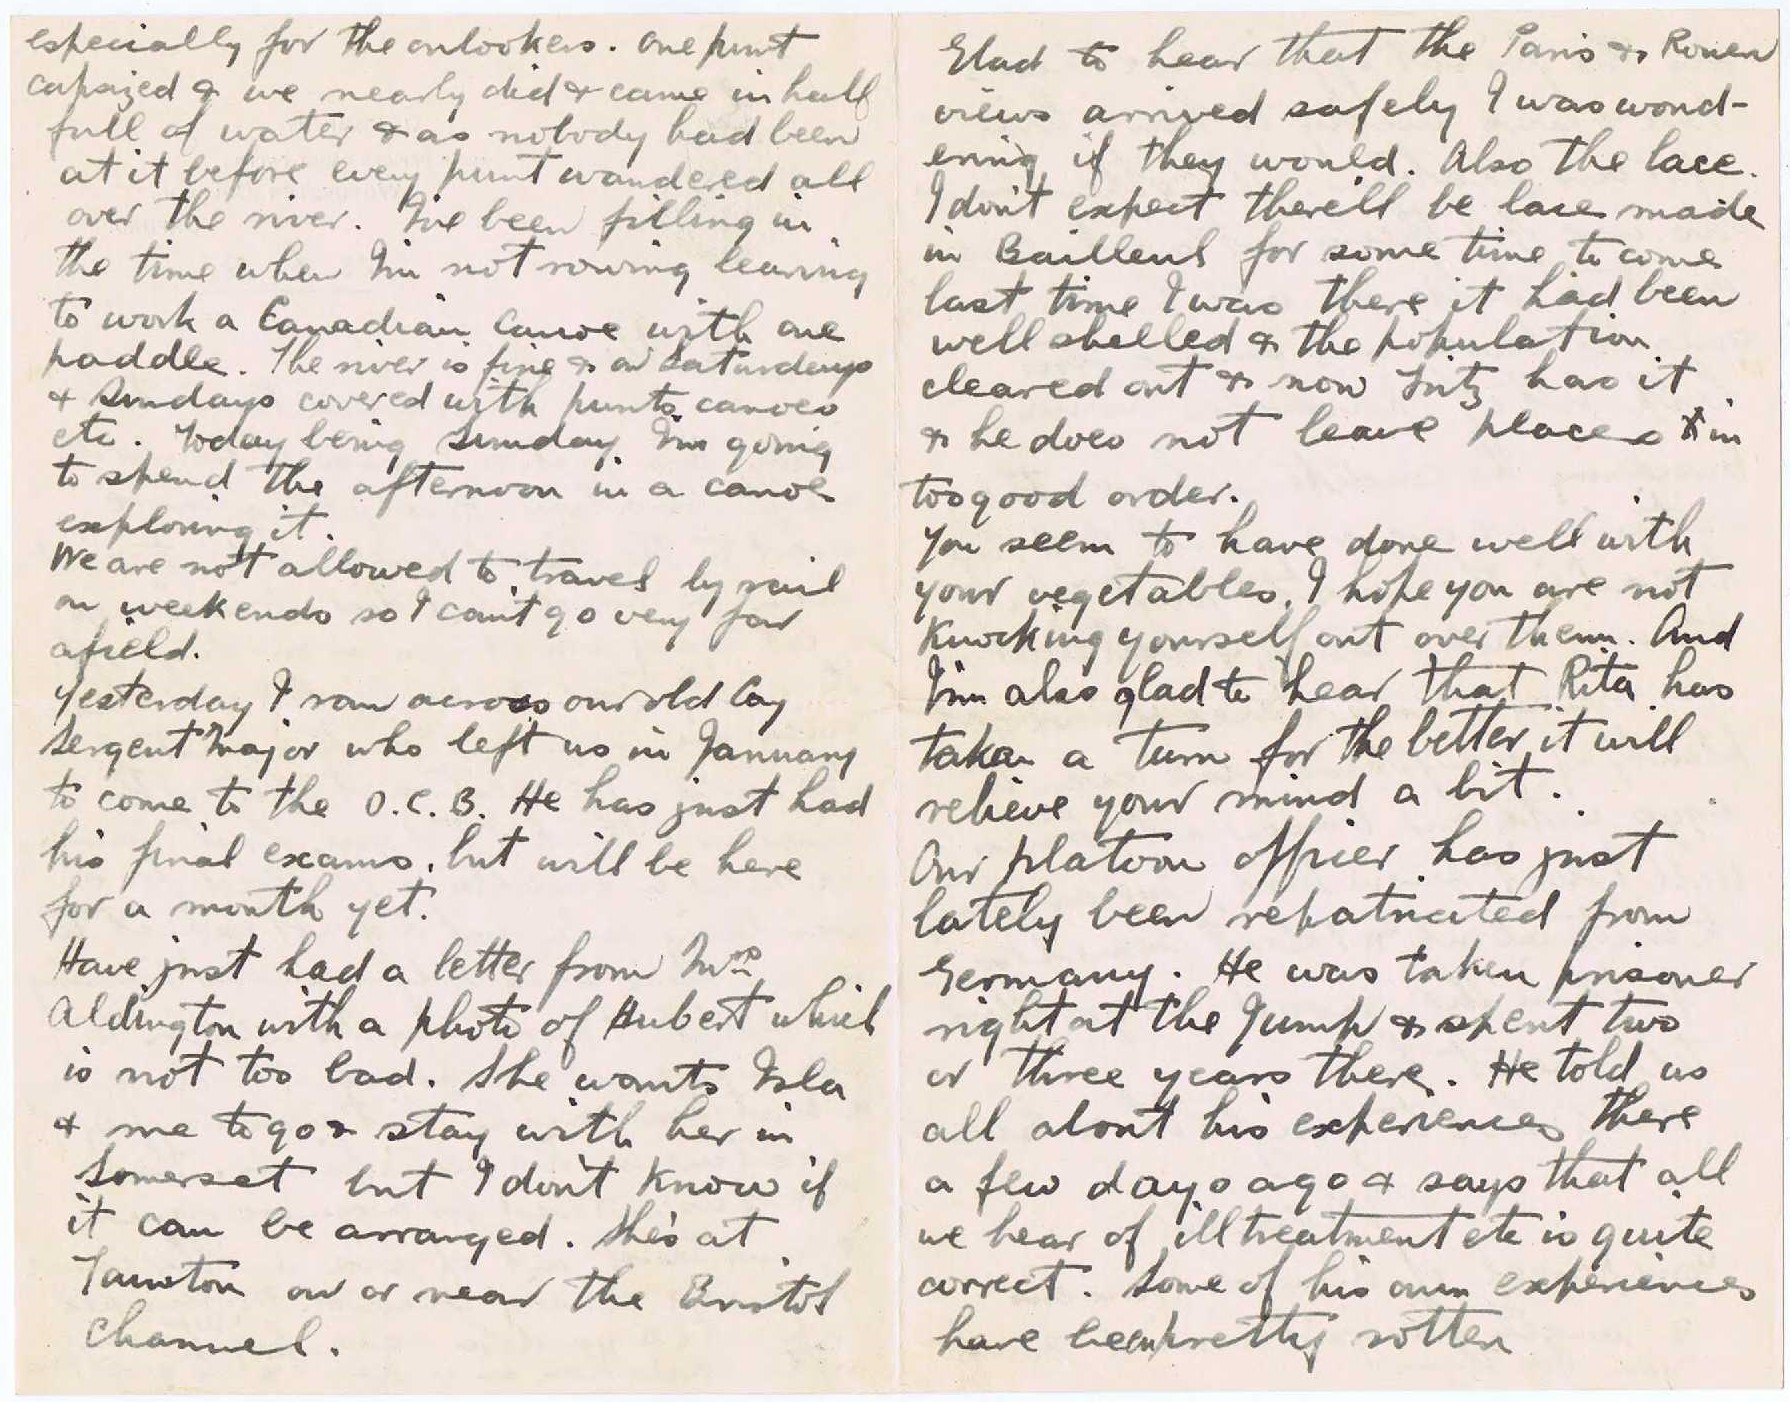 especially for the onlookers. One punt
capsized & we nearly did & came in half
full of water & as nobody had been
at it before every punt wandered all
over the river. I've been filling in
the time when I'm not rowing learning
to work a Canadian Canoe with one
paddle. The river is fine & on Saturdays
& Sundays covered with punts canoes
etc. Today being Sunday I'm going
to spend the afternoon in a canoe
exploring it.
We are not allowed to travel by rail
on weekends so I can't go very far
afield.
Yesterday I ran across our old Coy
Sergent Major who left us in January
to come to the O.C.B. He has just had
his final exams, but will be here
for a month yet.
Have just had a letter from Mrs
Aldington with a photo of Hubert which
is not too bad. She wants Isla
& me to go & stay with her in
Somerset but I don't know if
it can be arranged. She's at
Taunton on or near the Bristol
Channel.
Glad to hear that the Paris & Rouen
views arrived safely I was wond-
ering if they would. Also the lace.
I don't expect there'll be lace made
in Bailleul for some time to come
last time I was there it had been
well shelled & the population
cleared out & now Fritz has it
& he does not leave places in
too good order.
You seem to have done well with
your vegetables. I hope you are not
knocking yourself out over them. And
I'm also glad to hear that Rita has
taken a turn for the better, it will
relieve your mind a bit.
Our platoon officer has just
lately been repatriated from
Germany. He was taken prisoner
right at the Jump & spent two
or three years there. He told us
all about his experiences there
a few days ago & says that all
we hear of illtreatment etc is quite
correct. Some of his own experiences
have been pretty rotten